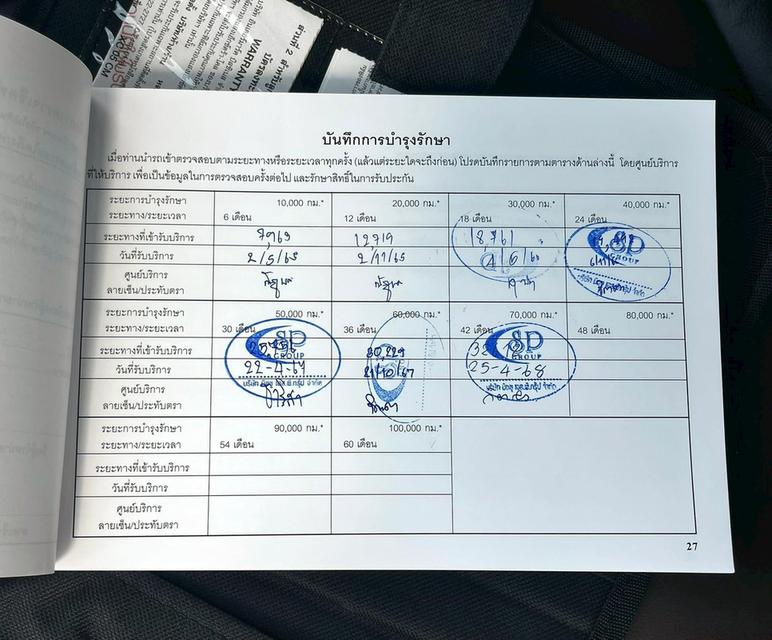 ส่วนที่ 2
WARRANTY
บันทึกการบำรุงรักษา
เมื่อท่านนำรถเข้าตรวจสอบตามระยะทางหรือระยะเวลาทุกครั้ง (แล้วแต่ระยะใดจะถึงก่อน) โปรดบันทึกรายการตามตารางด้านล่างนี้ โดยศูนย์บริการ
ที่ให้บริการ เพื่อเป็นข้อมูลในการตรวจสอบครั้งต่อไป และรักษาสิทธิ์ในการรับประกัน
ระยะการบำรุงรักษา 10,000 กม.* 20,000 กม.* 30,000 กม.* 40,000 กม.*
ระยะทาง/ระยะเวลา 6 เดือน 12 เดือน 18 เดือน 24 เดือน
ระยะทางที่เข้ารับบริการ 7963 12,719 18,761
วันที่รับบริการ 2/5/65 2/11/65
ศูนย์บริการ
ลายเซ็น/ประทับตรา
SP
GROUP
ระยะการบำรุงรักษา 50,000 กม.* 60,000 กม.* 70,000 กม.* 80,000 กม.*
ระยะทาง/ระยะเวลา 30 เดือน 36 เดือน 42 เดือน 48 เดือน
ระยะทางที่เข้ารับบริการ 30,229
วันที่รับบริการ 22-4-67 25-4-68
ศูนย์บริการ
ลายเซ็น/ประทับตรา
SP
GROUP
SP
GROUP
ระยะการบำรุงรักษา 90,000 กม.* 100,000 กม.*
ระยะทาง/ระยะเวลา 54 เดือน 60 เดือน
ระยะทางที่เข้ารับบริการ
วันที่รับบริการ
ศูนย์บริการ
ลายเซ็น/ประทับตรา
27